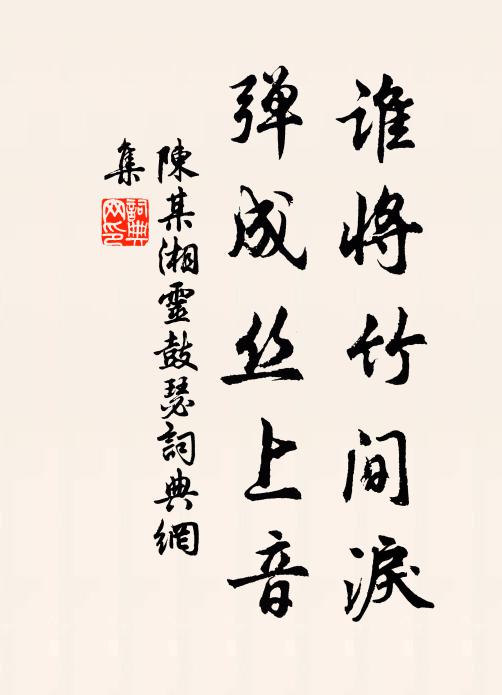 谁将竹间淚
弹成丝上音
陳某湘靈鼓瑟詞典網
集
詞典网印